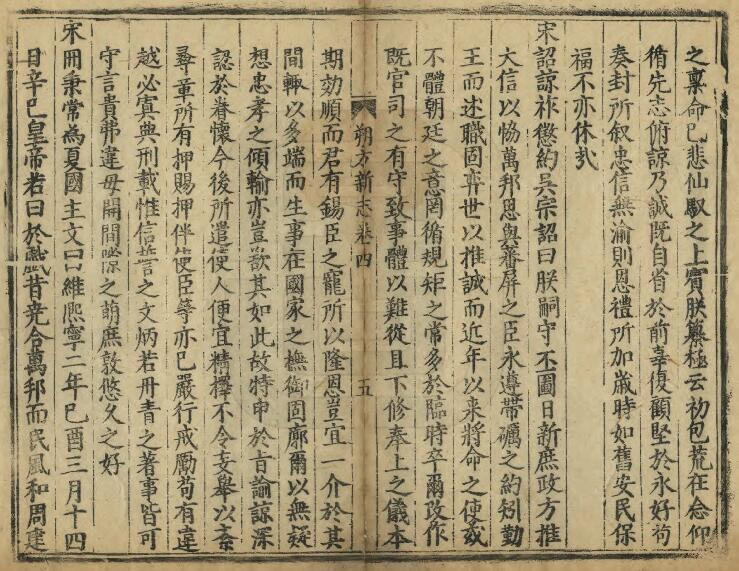 之稟命已悲仙馭之上賓朕纂極云初包荒在念仰
循先志俯諒乃誠既自省於前辜復顧堅於永好苟
奏封所叙忠信無渝則恩禮所加歲時如舊安民保
福不亦休㢤
宋詔諒祚懲約吳宗詔曰朕嗣守丕圖日新庶政方推
大信以恊萬邦思與蕃屏之臣永遵帶礪之約矧勤
王而述職固弈世以推誠而近年以来將命之使或
不體朝廷之意罔循規矩之常多於臨時卒爾改作
既官司之有守致事體以難從且下修奉上之儀本
朔方新志卷四
五
期効順而君有錫臣之寵所以隆恩豈宜一介於其
間輙以多端而生事在國家之撫御固廓爾以無疑
想忠孝之傾輸亦豈欲其如此故特申於㫖諭諒深
認於眷懷今後所遣使人便宜精擇不令妄舉以紊
尋章所有押賜押伴使臣等亦已嚴行戒勵苟有違
越必寘典刑載惟信誓之文炳若丹青之著事皆可
守言貴弗違毋開間隙之萌庶敦悠久之好
宋冊秉常為夏國主文曰維熈寧二年巳酉三月十四
日辛巳皇帝若曰於戲昔堯合萬邦而民風和周建